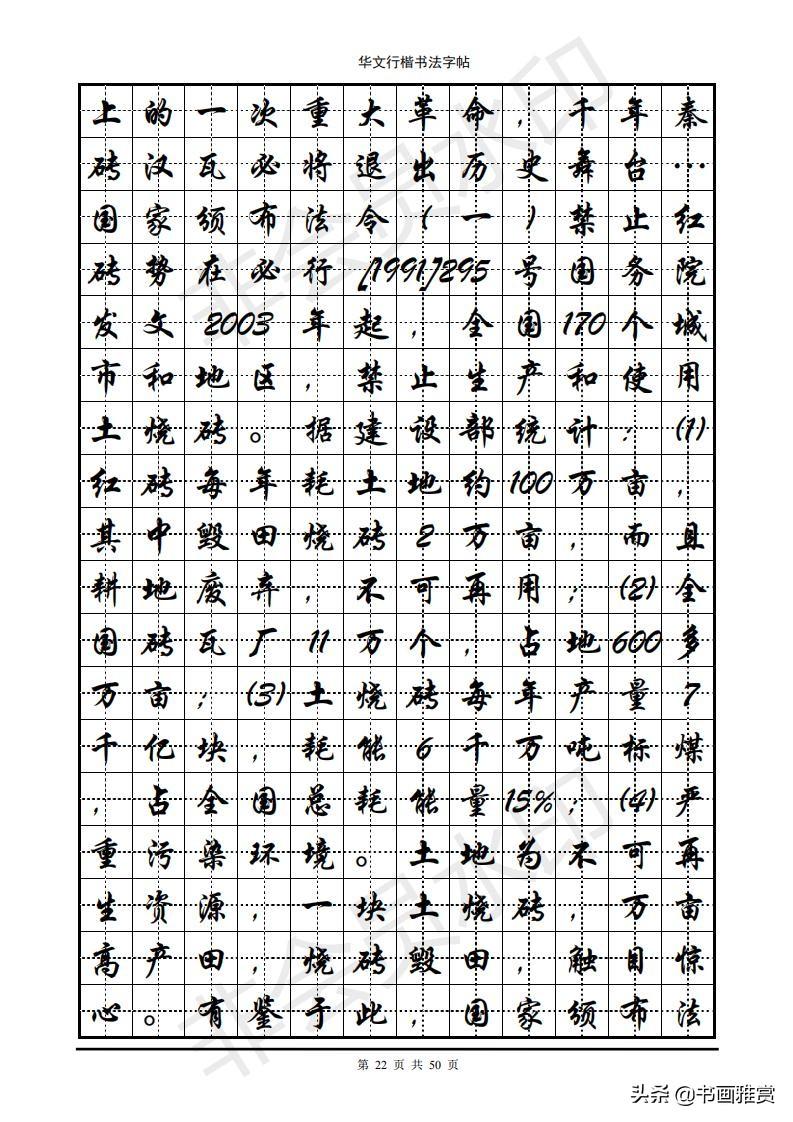 华文行楷书法字帖
上的一次重大革命，千年秦
砖汉瓦必将退出历史舞台…
国家颁布法令(一)禁止红
砖势在必行[1991]295号国务院
发文2003年起，全国170个城
市和地区，禁止生产和使用
土烧砖。据建设部统计：(1)
红砖每年耗土地约100万亩，
其中毁田烧砖2万亩，而且
耕地废弃，不可再用；(2)全
国砖瓦厂11万个，占地600多
万亩；(3)土烧砖每年产量7
千亿块，耗能6千万吨标煤
，占全国总耗能量15%；(4)严
重污染环境。土地为不可再
生资源，一块土烧砖，万亩
高产田，烧砖毁田，触目惊
心。有鉴于此，国家颁布法
非会员水印
非会员水印
第 22 页 共 50 页
头条 @书画雅赏